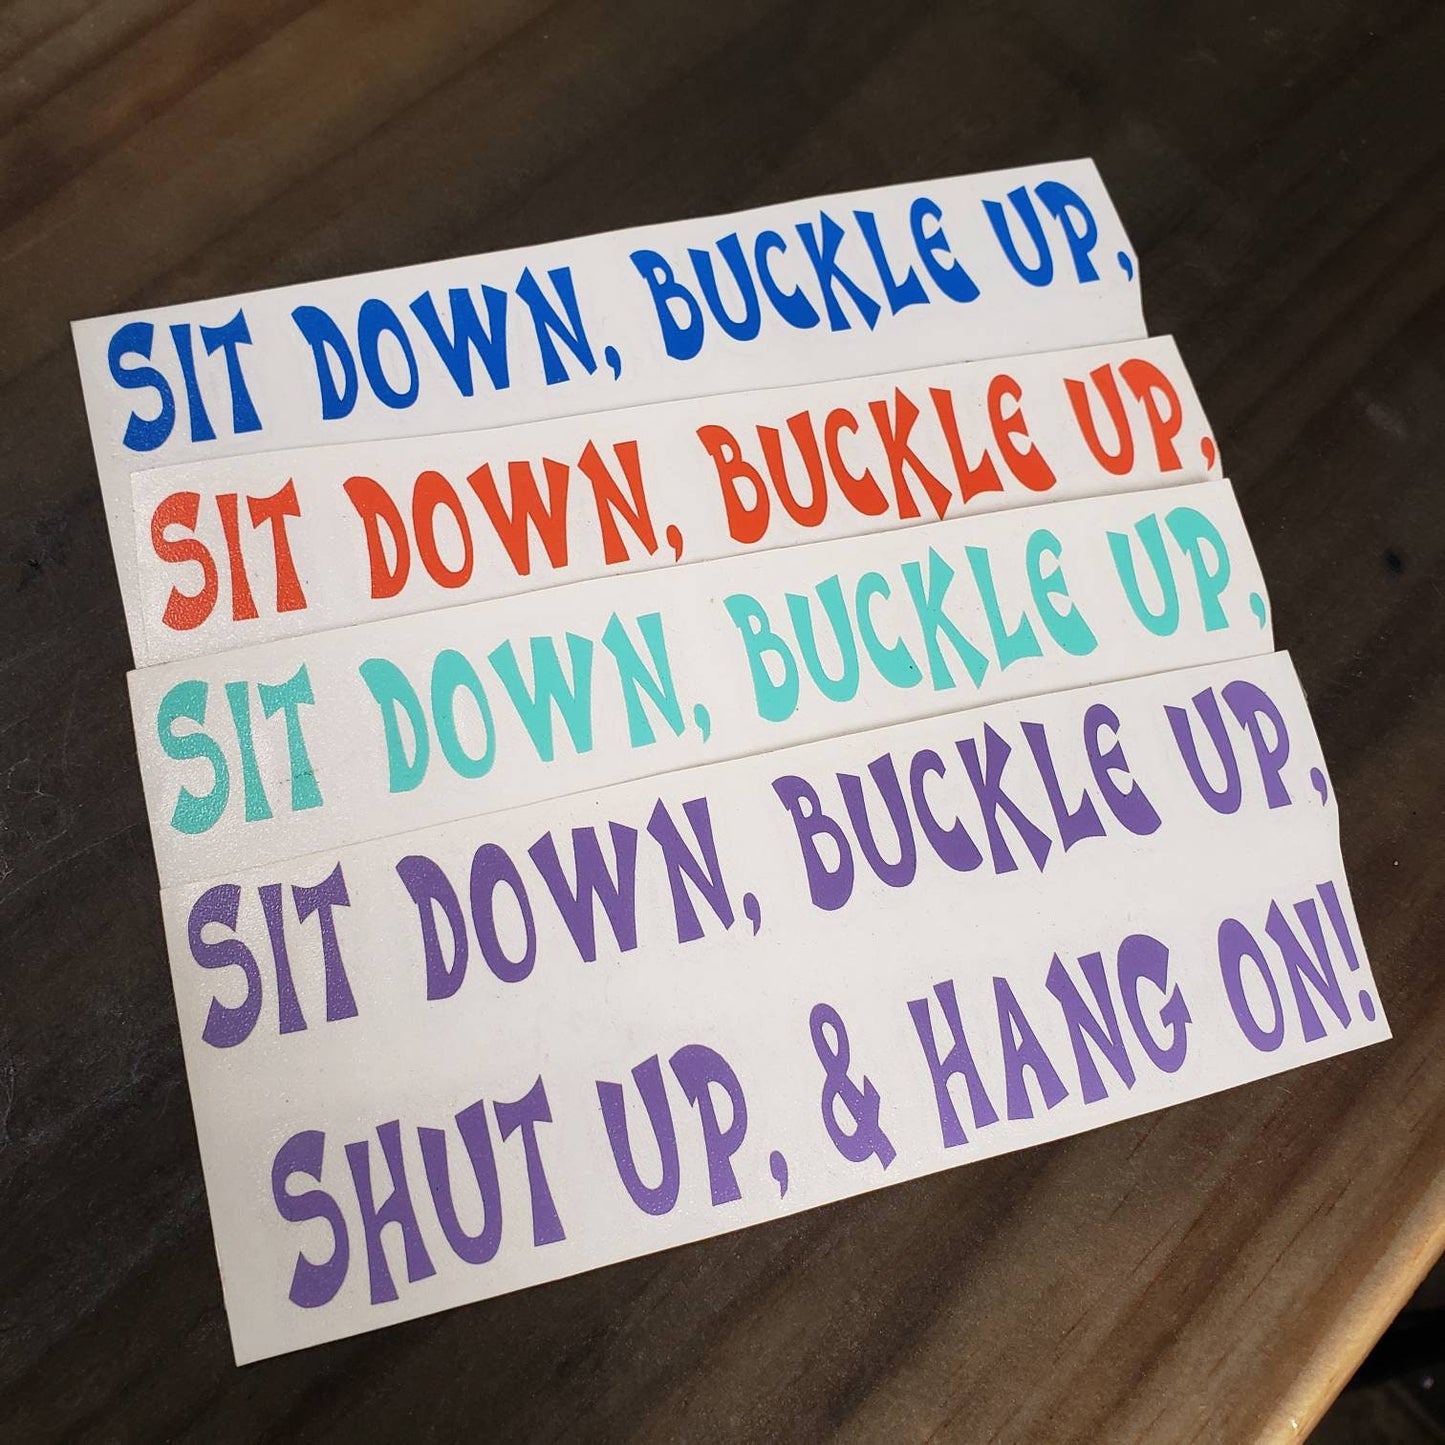 SIT DOWN, BUCKLE UP,
SIT DOWN, BUCKLE UP,
SIT DOWN, BUCKLE UP,
SIT DOWN, BUCKLE UP,
SHUT UP, & HANG ON!